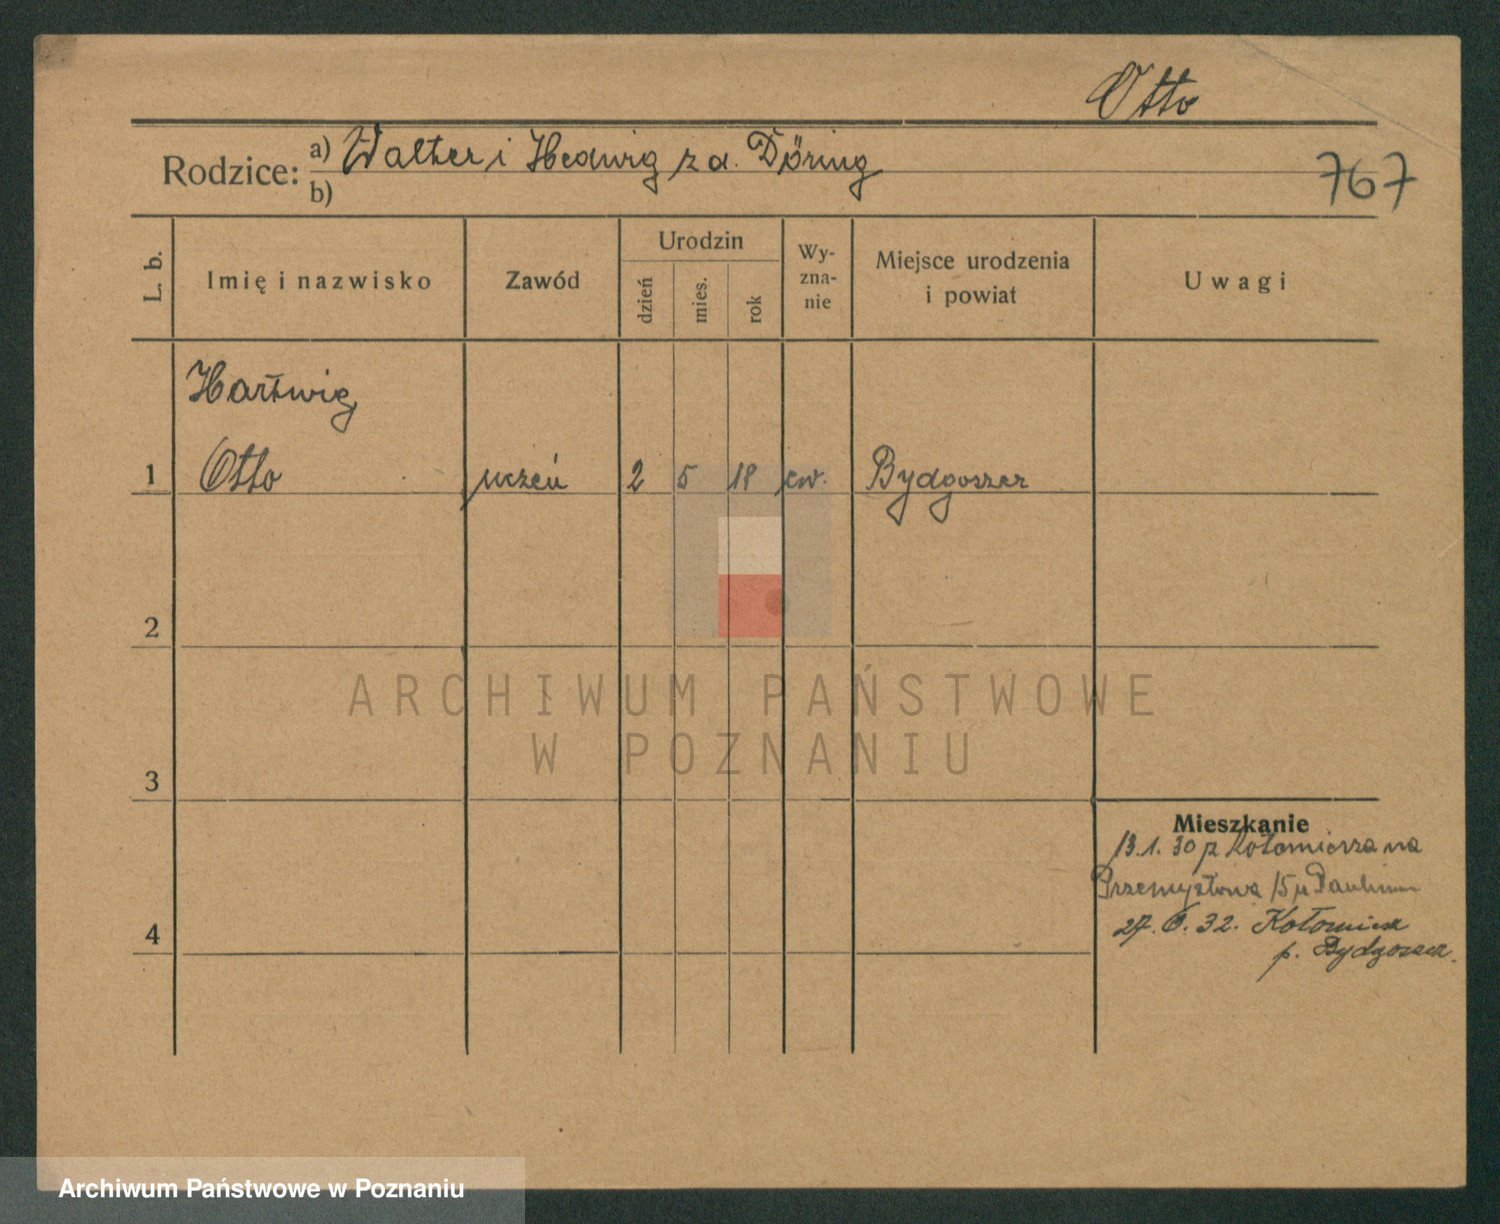 Otto
Rodzice: a) Walter i Hedwig z d. Döring
b)
767
L. b.
Imię i nazwisko
Zawód
Urodzin
dzień
mies.
rok
Wy-
zna-
nie
Miejsce urodzenia
i powiat
Uwagi
Hartwig
1 Otto uczeń 2 5 18 ew. Bydgoszcz
2
3
4
Mieszkanie
13.1.30 z
Przemysłowa 15
27.6.32.
p. Bydgoszcz.
ARCHIWUM PAŃSTWOWE
W POZNANIU
Archiwum Państwowe w Poznaniu